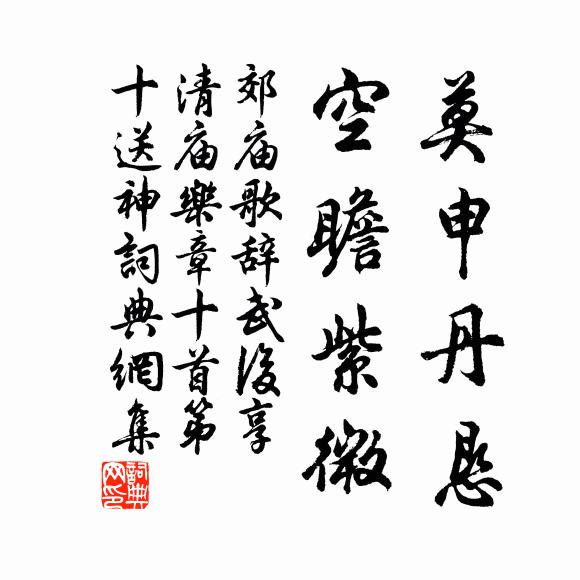 莫申丹恳
空瞻紫微
郊庙歌辞武後享
清庙樂章十首第
十送神詞典網集
詞典网印